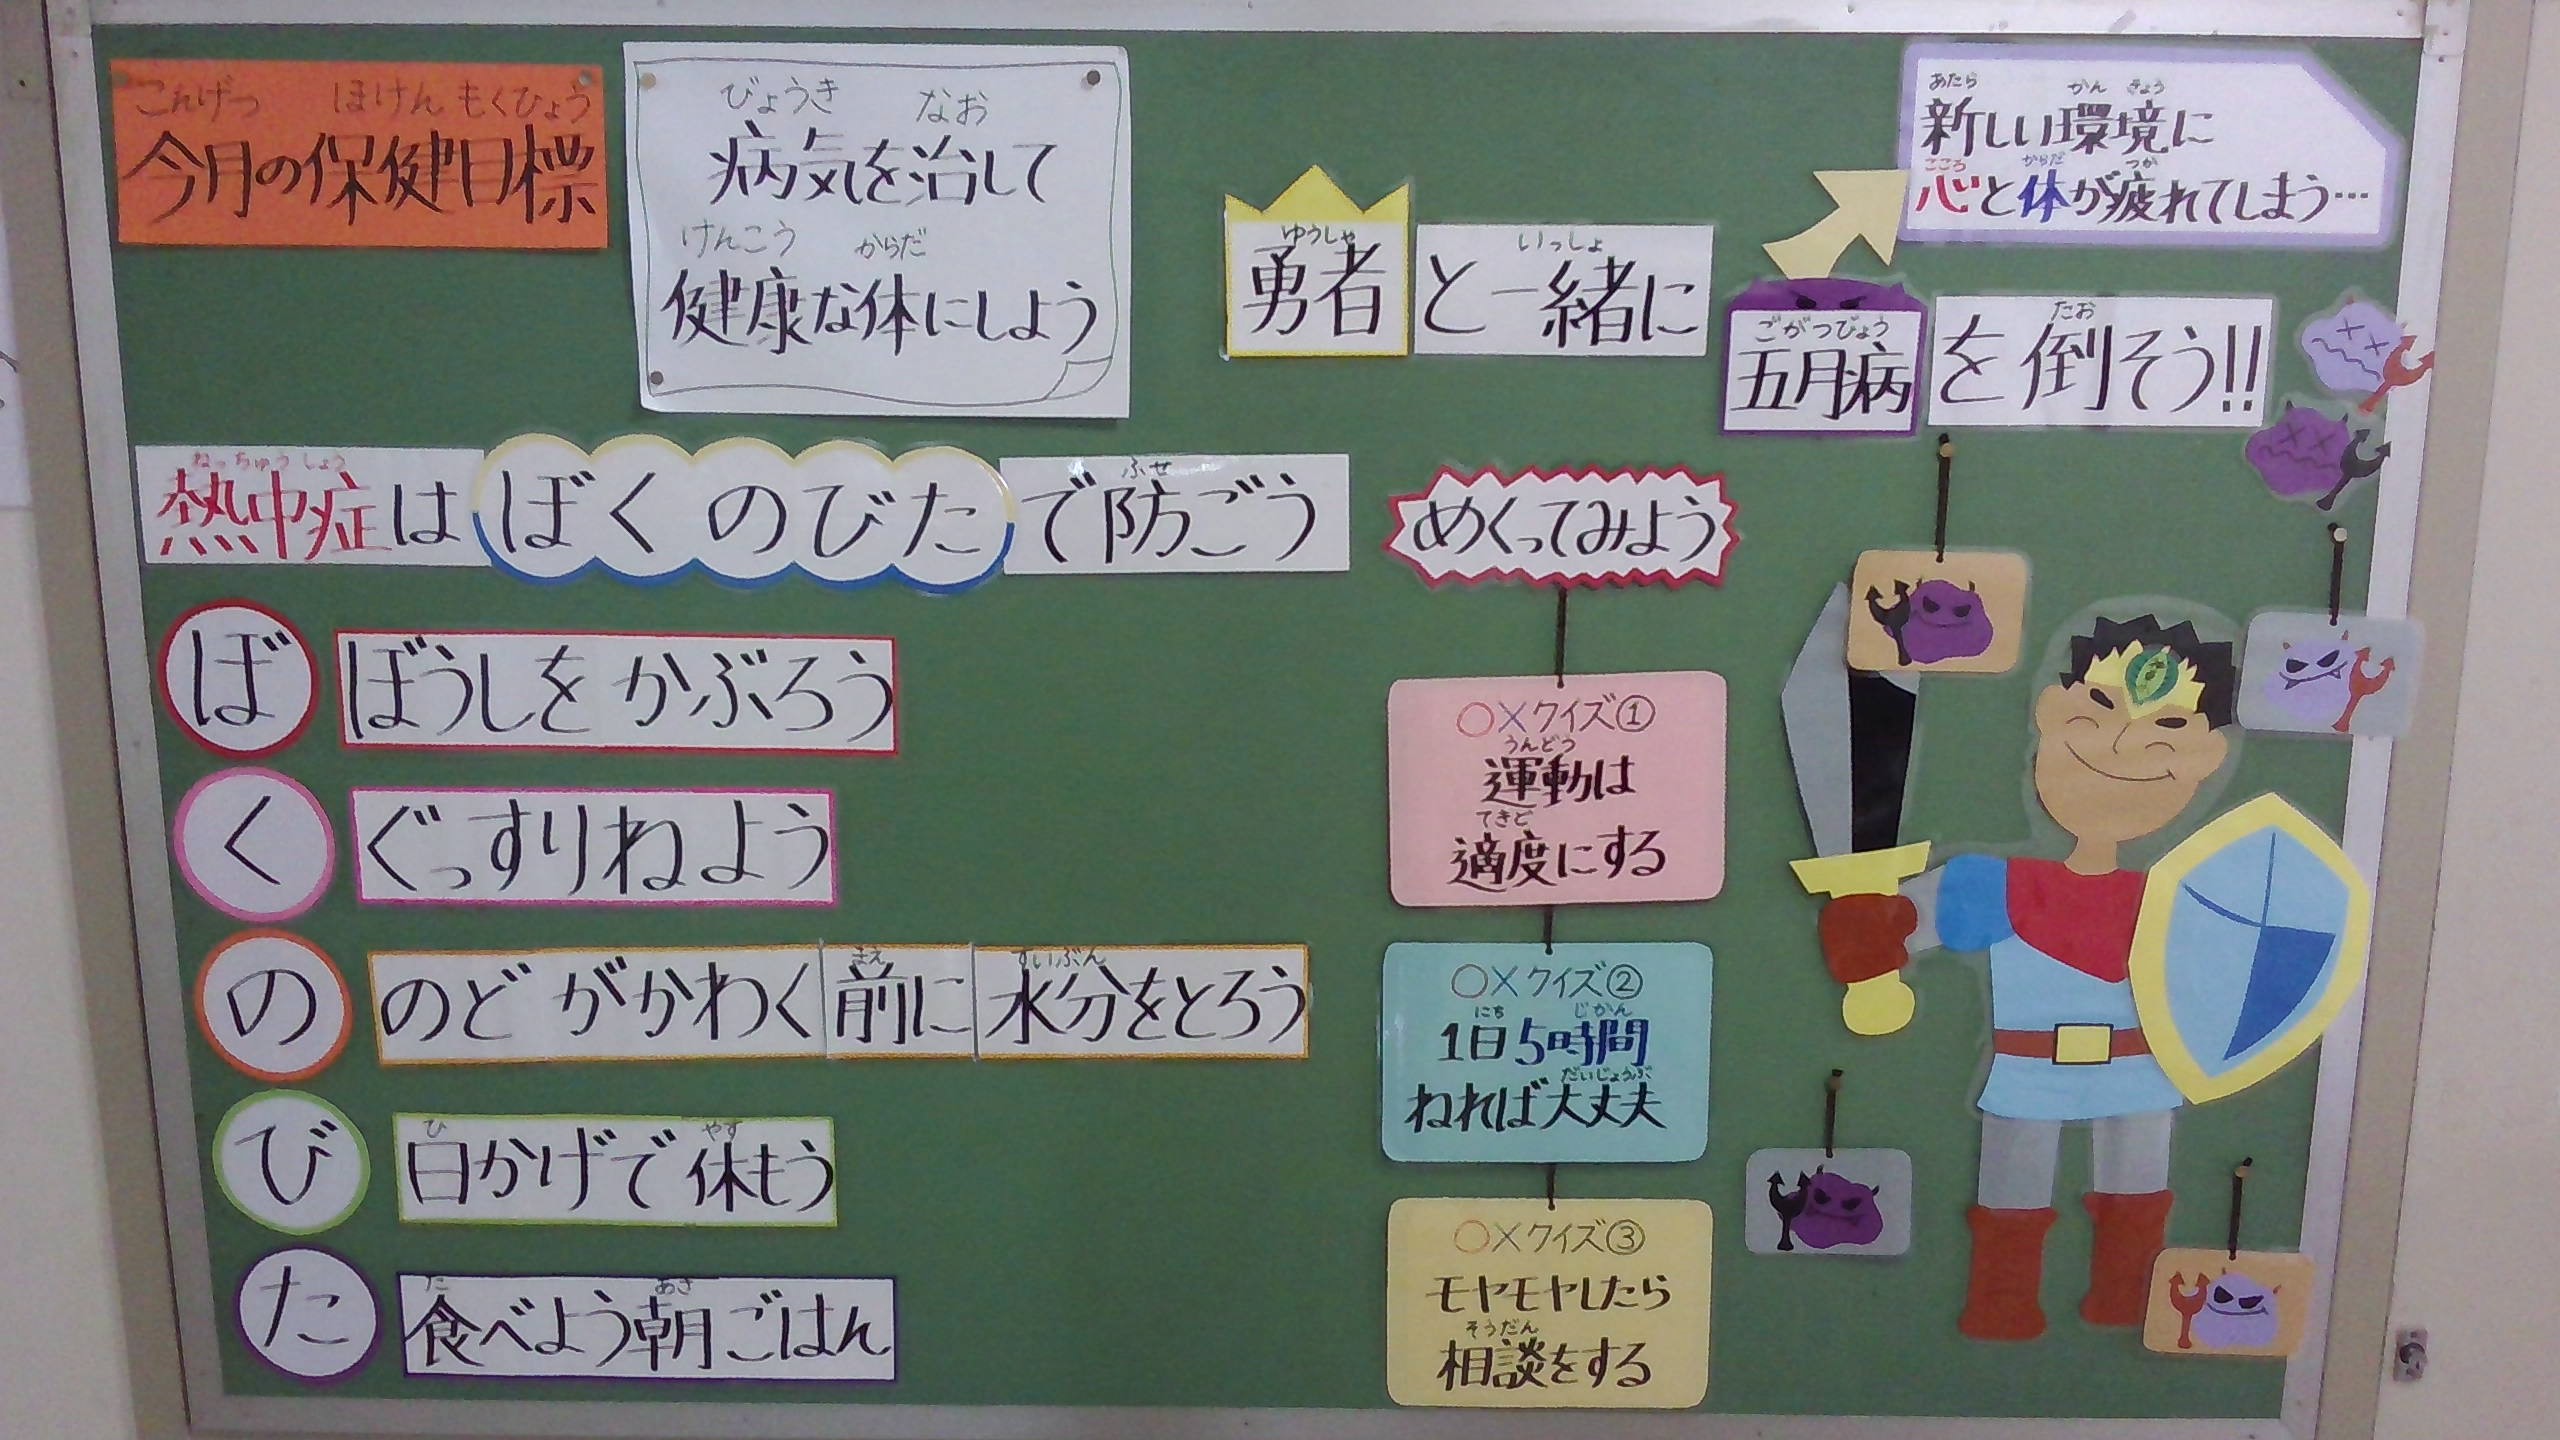 こんげつ ほけん もくひょう
今月の保健目標
びょうき なお
病気を治して
けんこう からだ
健康な体にしよう
ゆうしゃ いっしょ
勇者と一緒に
ごがつびょう たお
五月病を倒そう!!
あたら かん きょう
新しい環境に
こころ からだ つか
心と体が疲れてしまう…
ねっちゅうしょう ふせ
熱中症はぼくのびたで防ごう
ぼ ぼうしを かぶろう
く ぐっすりねよう
まえ すいぶん
の のどがかわく前に水分をとろう
ひ やす
び 日かげで休もう
た あさ
た 食べよう朝ごはん
めくってみよう
○×クイズ①
うんどう
運動は
てきど
適度にする
○×クイズ②
にち じかん
1日5時間
だいじょうぶ
ねれば大丈夫
○×クイズ③
モヤモヤしたら
そうだん
相談をする